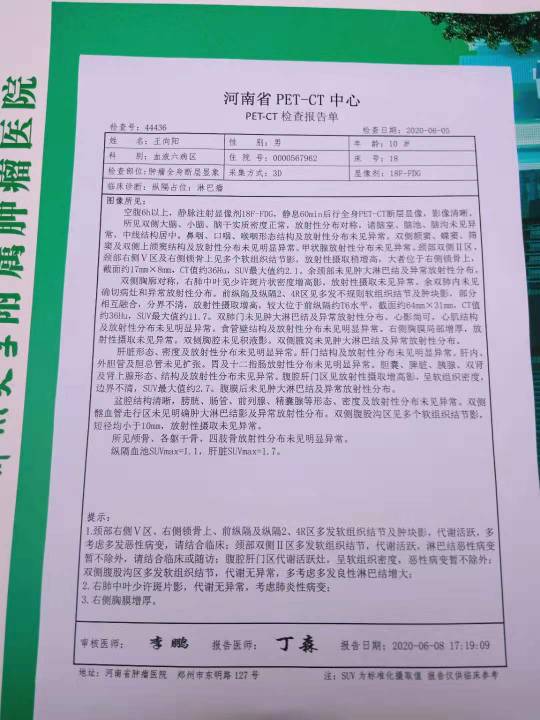 附属肿瘤医院
河南省 PET-CT 中心
PET-CT 检查报告单
检查号：44436 检查日期：2020-06-05
姓 名：王向阳 性 别：男 年 龄：10 岁
科 别：血液六病区 住 院 号：0000567962 床 号：18
检查部位：肿瘤全身断层显象 采集方式：3D 显像剂：18F-FDG
临床诊断：纵隔占位：淋巴瘤
图像所见：
空腹6h以上，静脉注射显像剂18F-FDG，静息60min后行全身PET-CT断层显像，影像清晰。
所见双侧大脑、小脑、脑干实质密度正常，放射性分布对称，诸脑室、脑池、脑沟未见异
常，中线结构居中。鼻咽、口咽、喉咽形态结构及放射性分布未见异常。双侧额窦、蝶窦、筛
窦及双侧上颌窦结构及放射性分布未见明显异常。甲状腺放射性分布未见异常。颈部双侧Ⅱ区、
颈部右侧Ⅴ区及右侧锁骨上见多个软组织结节影，放射性摄取稍增高，大者位于右侧锁骨上，
截面约17mm×8mm，CT值约36Hu，SUV最大值约2.1。余颈部未见肿大淋巴结及异常放射性分布。
双侧胸廓对称，右肺中叶见少许斑片状密度增高影，放射性摄取未见异常。余双肺内未见
确切病灶和异常放射性分布。前纵隔及纵隔2、4R区见多发不规则软组织结节及肿块影，部分
相互融合，分界不清，放射性摄取增高，较大位于前纵隔约T6水平，截面约64mm×31mm，CT值
约36Hu，SUV最大值约11.7。双肺门未见肿大淋巴结及异常放射性分布。心影尚可，心肌结构
及放射性分布未见异常。食管壁结构及放射性分布未见明显异常。右侧胸膜局部增厚，放
射性摄取未见异常。双侧胸腔未见积液影。双侧腋窝未见肿大淋巴结及异常放射性分布。
肝脏形态、密度及放射性分布未见明显异常。肝门结构及放射性分布未见异常。肝内、
外胆管及胆总管未见扩张。胃及十二指肠放射性分布未见明显异常。胆囊、脾脏、胰腺、双肾
及肾上腺形态、结构及放射性分布未见异常。腹腔肝门区见放射性摄取增高影，呈软组织密度，
边界不清，SUV最大值约2.7。腹膜后未见肿大淋巴结及异常放射性分布。
盆腔结构清晰，膀胱、肠管、前列腺、精囊腺等形态、密度及放射性分布未见异常。双侧
髂血管走行区未见明确肿大淋巴结影及异常放射性分布。双侧腹股沟区见多个软组织结节影，
短径均小于10mm，放射性摄取未见异常。
所见颅骨、各躯干骨、四肢骨放射性分布未见明显异常。
纵隔血池SUVmax=1.1，肝脏SUVmax=1.7。
提示：
1.颈部右侧Ⅴ区、右侧锁骨上、前纵隔及纵隔2、4R区多发软组织结节及肿块影，代谢活跃，多
考虑多发恶性病变，请结合临床；颈部双侧Ⅱ区多发软组织结节，代谢活跃，淋巴结恶性病变
暂不除外，请结合临床或随访；腹腔肝门区代谢活跃灶，呈软组织密度，恶性病变暂不除外；
双侧腹股沟区多发软组织结节，代谢无异常，多考虑多发良性淋巴结增大；
2.右肺中叶少许斑片影，代谢无异常，考虑肺炎性病变；
3.右侧胸膜增厚。
审核医师： 李鹏 报告医师： 丁森 报告日期：2020-06-08 17:19:09
地址：河南省肿瘤医院 郑州市东明路 127 号 注：SUV 为标准化摄取值 报告仅供临床参考